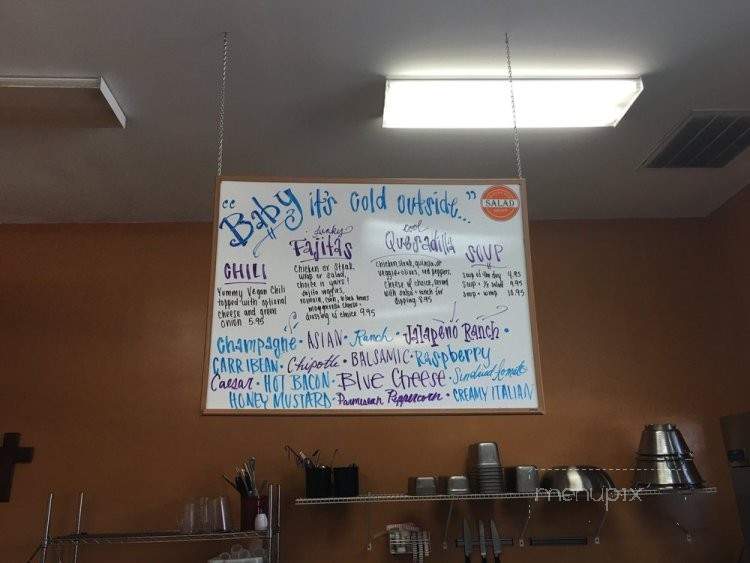 "Baby it's cold outside..."
SALAD
CHILI
Yummy Vegan Chili
topped with optional
cheese and green
onion 5.95
funky
Fajitas
Chicken or Steak
wrap or salad,
choice is yours!
fajita veggies,
romaine, corn, black beans
cheese +
dressing of choice 9.95
cool
Quesadilla
Chicken, steak, quinoa or
veggie + olives, red peppers,
cheese of choice, served
with salsa + ranch for
dipping 8.95
SOUP
Soup of the day 4.95
Soup + 1/2 salad 9.95
Soup + wrap 10.95
Champagne · ASIAN · Ranch · Jalapeño Ranch ·
CARRIBEAN · Chipotle · BALSAMIC · Raspberry
Caesar · HOT BACON · Blue Cheese · Sundried tomato
HONEY MUSTARD · Parmesan Peppercorn · CREAMY ITALIAN
menupix